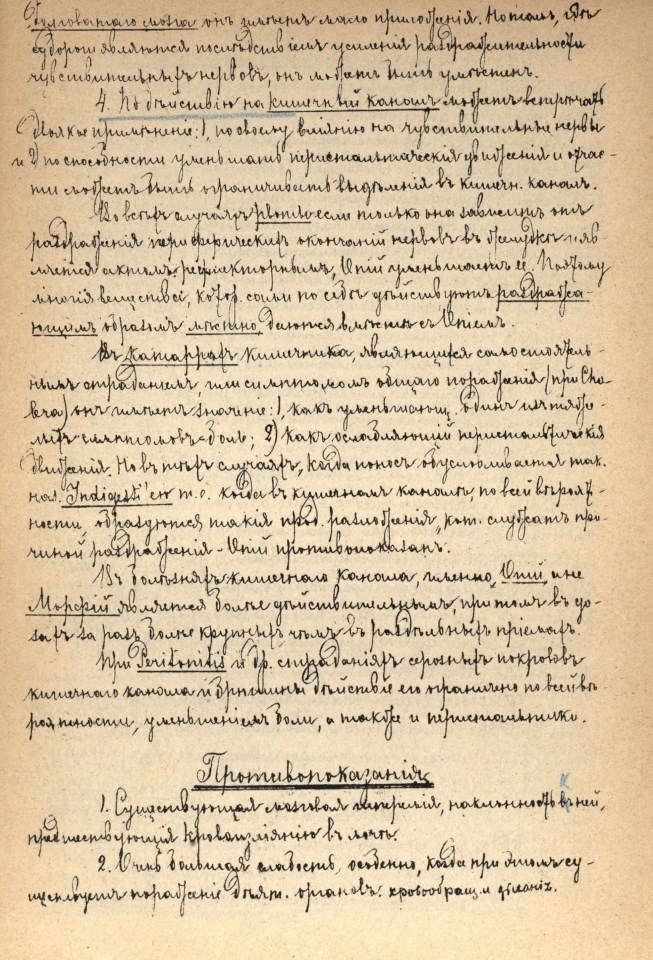 долговатаго мозга онъ имѣетъ мало приложенія. Но тамъ, гдѣ
судороги являются послѣдствіемъ усиленія раздражительности
чувствительныхъ нервовъ, онъ можетъ быть умѣстенъ.
4. По дѣйствію на кишечный каналъ можетъ встрѣчать
двоякое примѣненіе: 1, по своему вліянію на чувствительные нервы
и 2) по способности уменьшать перистальтическія движенія и отчас-
ти можетъ быть ограничивать выдѣленія въ кишечн. каналъ.
Во всѣхъ случаяхъ рвоты если только она зависитъ отъ
раздраженія периферическихъ окончаній нервовъ въ желудкѣ и яв-
ляется актомъ рефлекторнымъ, Опій уменьшаетъ ее. Поэтому
многія вещества, котор. сами по себѣ дѣйствуютъ раздража-
ющимъ образомъ мѣстно, даются вмѣстѣ съ Опіемъ.
Въ катаррахъ кишечника, являющихся самостоятель-
нымъ страданіемъ, или симптомомъ общаго пораженія (при Cho-
lera) онъ имѣетъ значеніе: 1, какъ уменьшающ. одинъ изъ тяже-
лыхъ симптомовъ - боль; 2) какъ ослабляющій перистальтическія
движенія. Но въ тѣхъ случаяхъ, когда поносъ обусловливается так.
наз. Indigesti'ею т.е. когда въ кишечномъ каналѣ, по всей вѣроят-
ности образуются такія прод. разложенія, кот. служатъ при-
чиной раздраженія - Опій противопоказанъ.
Въ болѣзняхъ кишечнаго канала, именно, Опій, а не
Морфій является болѣе дѣйствительнымъ, притомъ въ до-
захъ за разъ болѣе крупныхъ чѣмъ въ раздѣльныхъ пріемахъ.
При Peritonitis и др. страданіяхъ серозныхъ покрововъ
кишечнаго канала и брюшины дѣйствіе его ограничено по всей вѣ-
роятности, уменьшеніемъ боли, а также и перистальтики.
Противопоказанія
1. Существующая мозговая гиперемія, наклонность къ ней,
предшествующія кровоизліянію въ мозгъ.
2. Очень большая слабость, особенно, когда при этомъ су-
ществуетъ пораженіе дѣят. органовъ кровообращ. и дыханія.